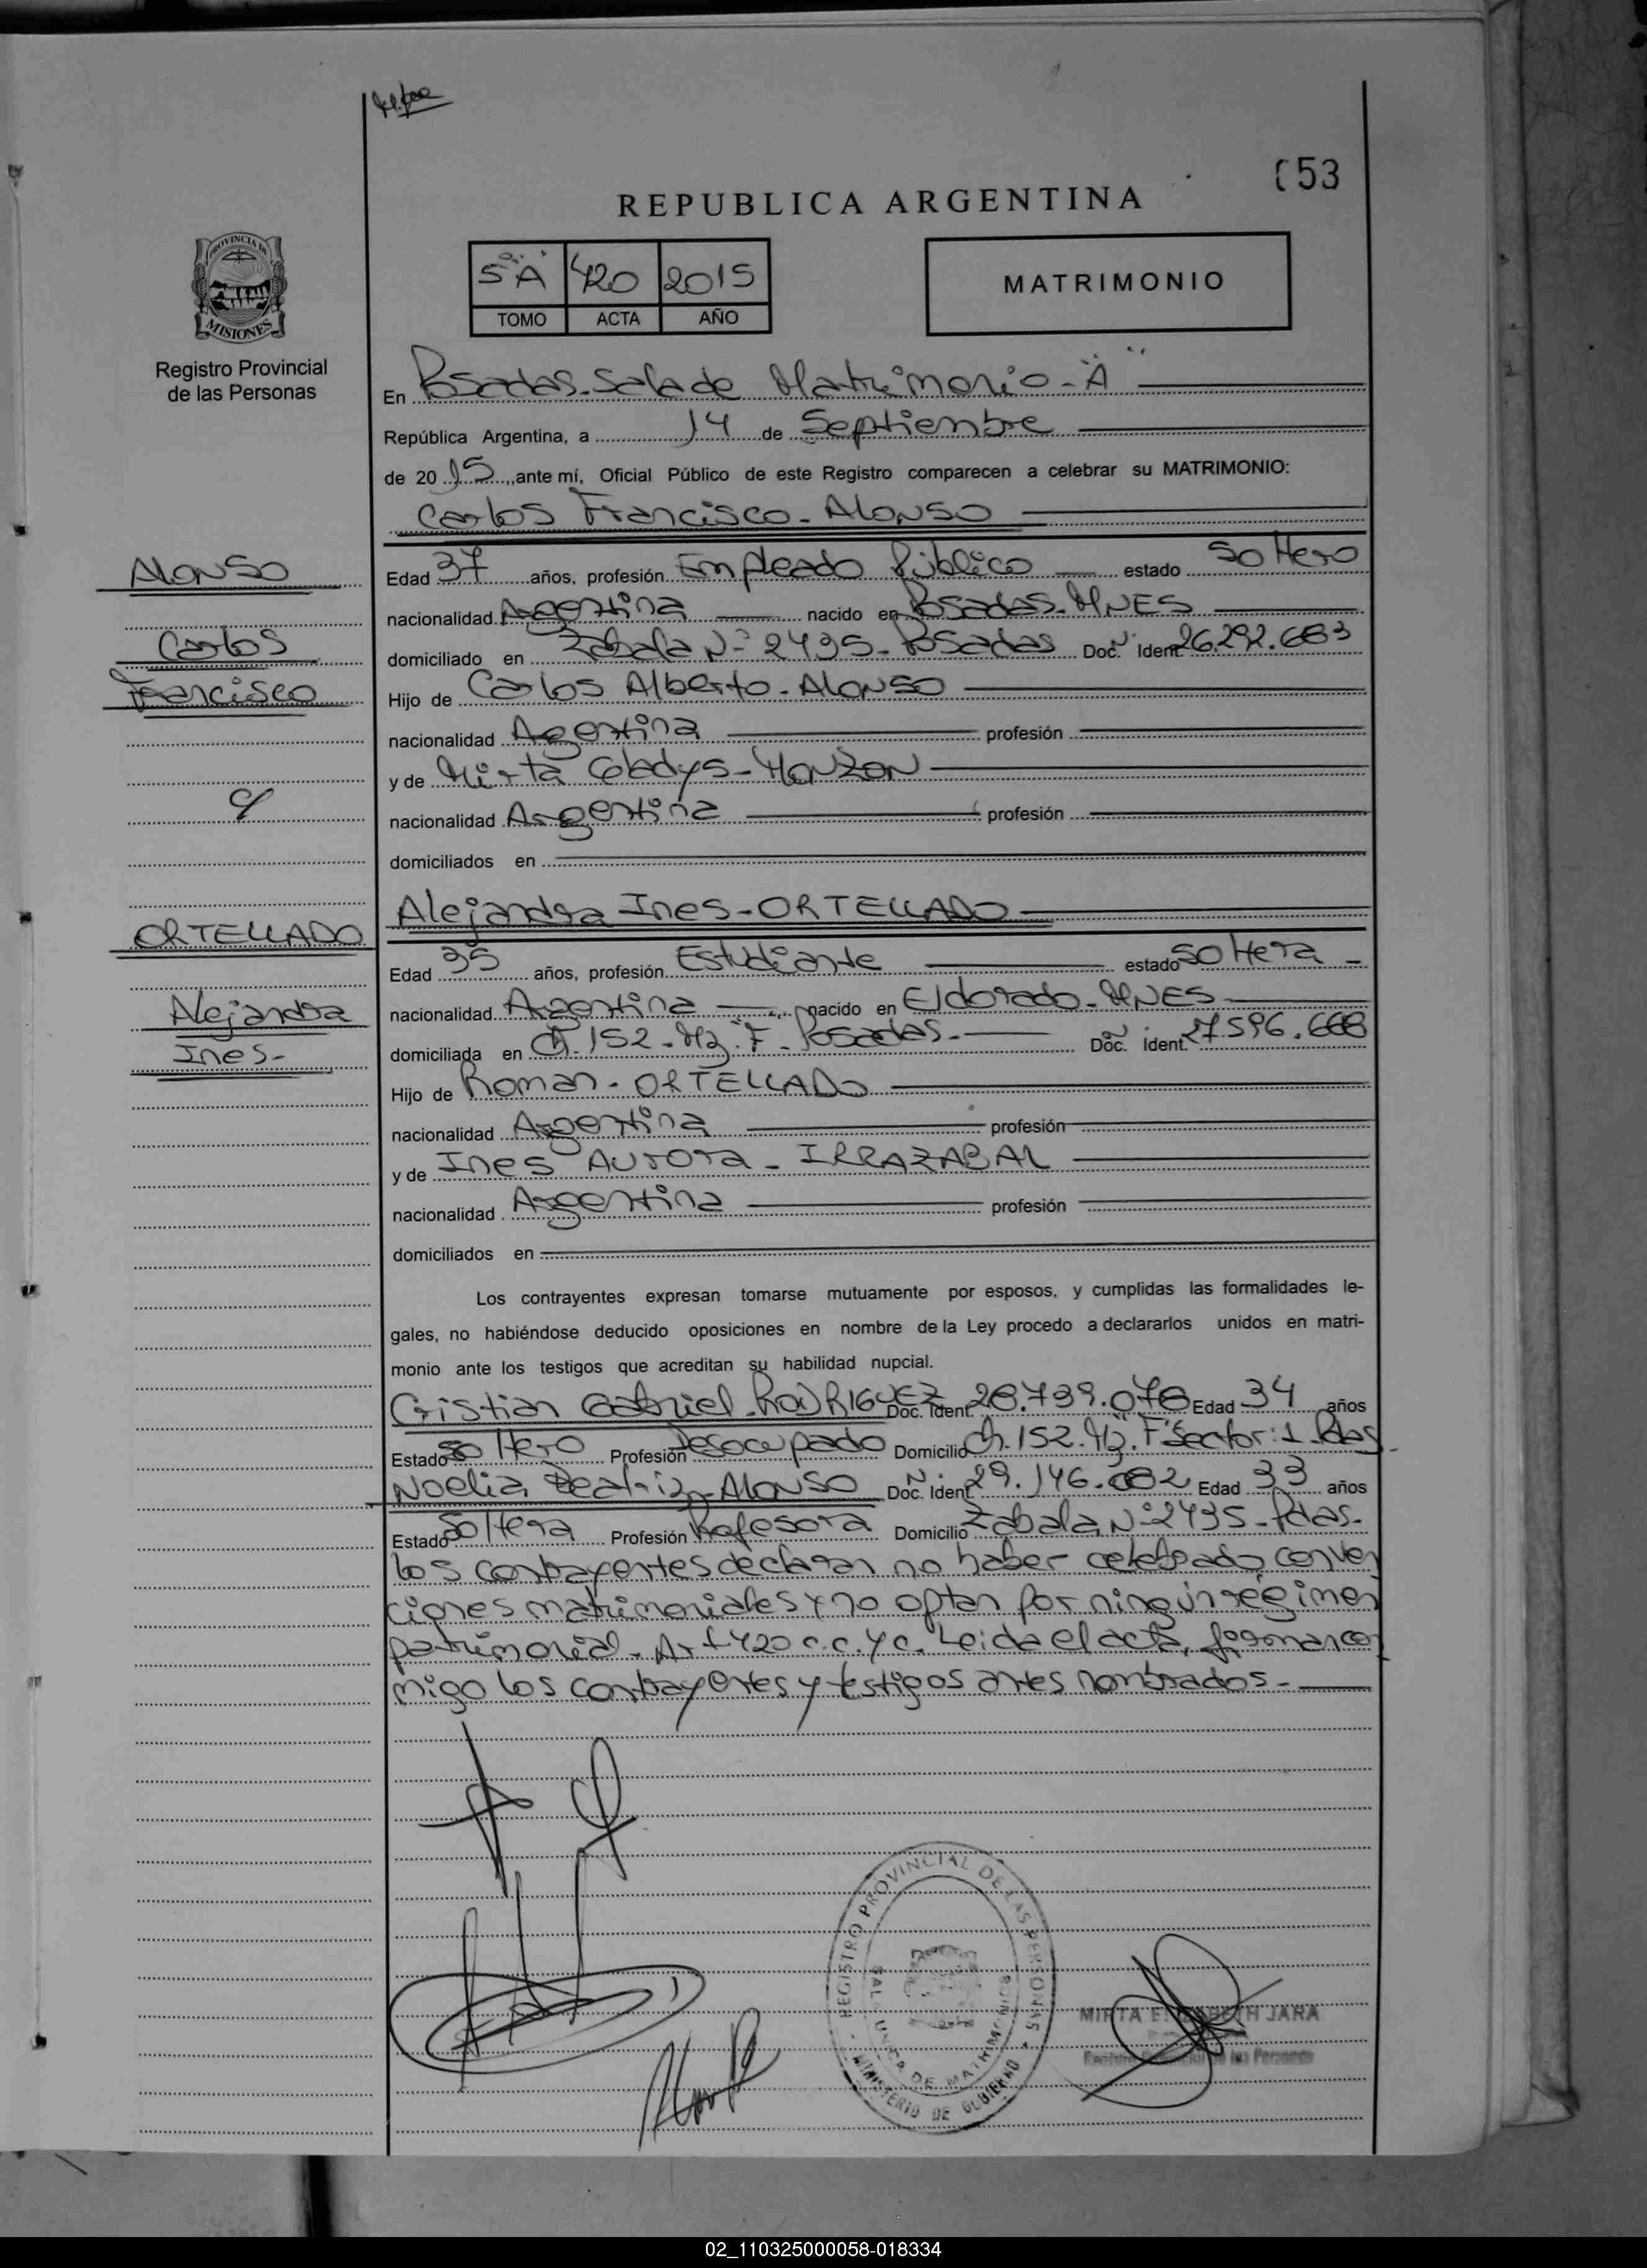 053
REPUBLICA ARGENTINA
5° "A" 420 2015
TOMO ACTA AÑO
MATRIMONIO
PROVINCIA DE
MISIONES
Registro Provincial
de las Personas
En Posadas. Sala de Matrimonio - "A"
República Argentina, a 14 de Septiembre
de 2015, ante mí, Oficial Público de este Registro comparecen a celebrar su MATRIMONIO:
Carlos Francisco - ALONSO
ALONSO
Carlos
Francisco
c/
Edad 37 años, profesión Empleado Público estado Soltero
nacionalidad Argentina nacido en Posadas - MNES
domiciliado en Zabala N° 2435 - Posadas Doc. Ident. N° 26.292.683
Hijo de Carlos Alberto - ALONSO
nacionalidad Argentina profesión
y de Mirta Gladys - MONZON
nacionalidad Argentina profesión
domiciliados en
Alejandra Ines - ORTELLADO
ORTELLADO
Alejandra
Ines -
Edad 35 años, profesión Estudiante estado Soltera -
nacionalidad Argentina nacido en Eldorado - MNES
domiciliada en Ch. 152 - Mz. "F" - Posadas. - Doc. Ident. N° 27.596.668
Hijo de Roman - ORTELLADO
nacionalidad Argentina profesión
y de Ines Aurora - IRRAZABAL
nacionalidad Argentina profesión
domiciliados en
Los contrayentes expresan tomarse mutuamente por esposos, y cumplidas las formalidades le-
gales, no habiéndose deducido oposiciones en nombre de la Ley procedo a declararlos unidos en matri-
monio ante los testigos que acreditan su habilidad nupcial.
Cristian Gabriel - RODRIGUEZ Doc. Ident. 28.739.078 Edad 34 años
Estado Soltero Profesión Desocupado Domicilio Ch. 152. Mz. "F" Sector: 1 Pdas -
Noelia Beatriz - ALONSO Doc. Ident. N° 29.146.082 Edad 33 años
Estado Soltera Profesión Profesora Domicilio Zabala N° 2435 - Pdas -
los contrayentes declaran no haber celebrado conven
ciones matrimoniales y no optan por ningún régimen
patrimonial - Art 420 c.c.y c. Leida el acta, firman con
migo los contrayentes y testigos antes nombrados. -
REGISTRO PROVINCIAL DE LAS PERSONAS
SALA UNICA DE MATRIMONIOS
MINISTERIO DE GOBIERNO
MIRTA ELIZABETH JARA
Registro Provincial de las Personas
02_110325000058-018334